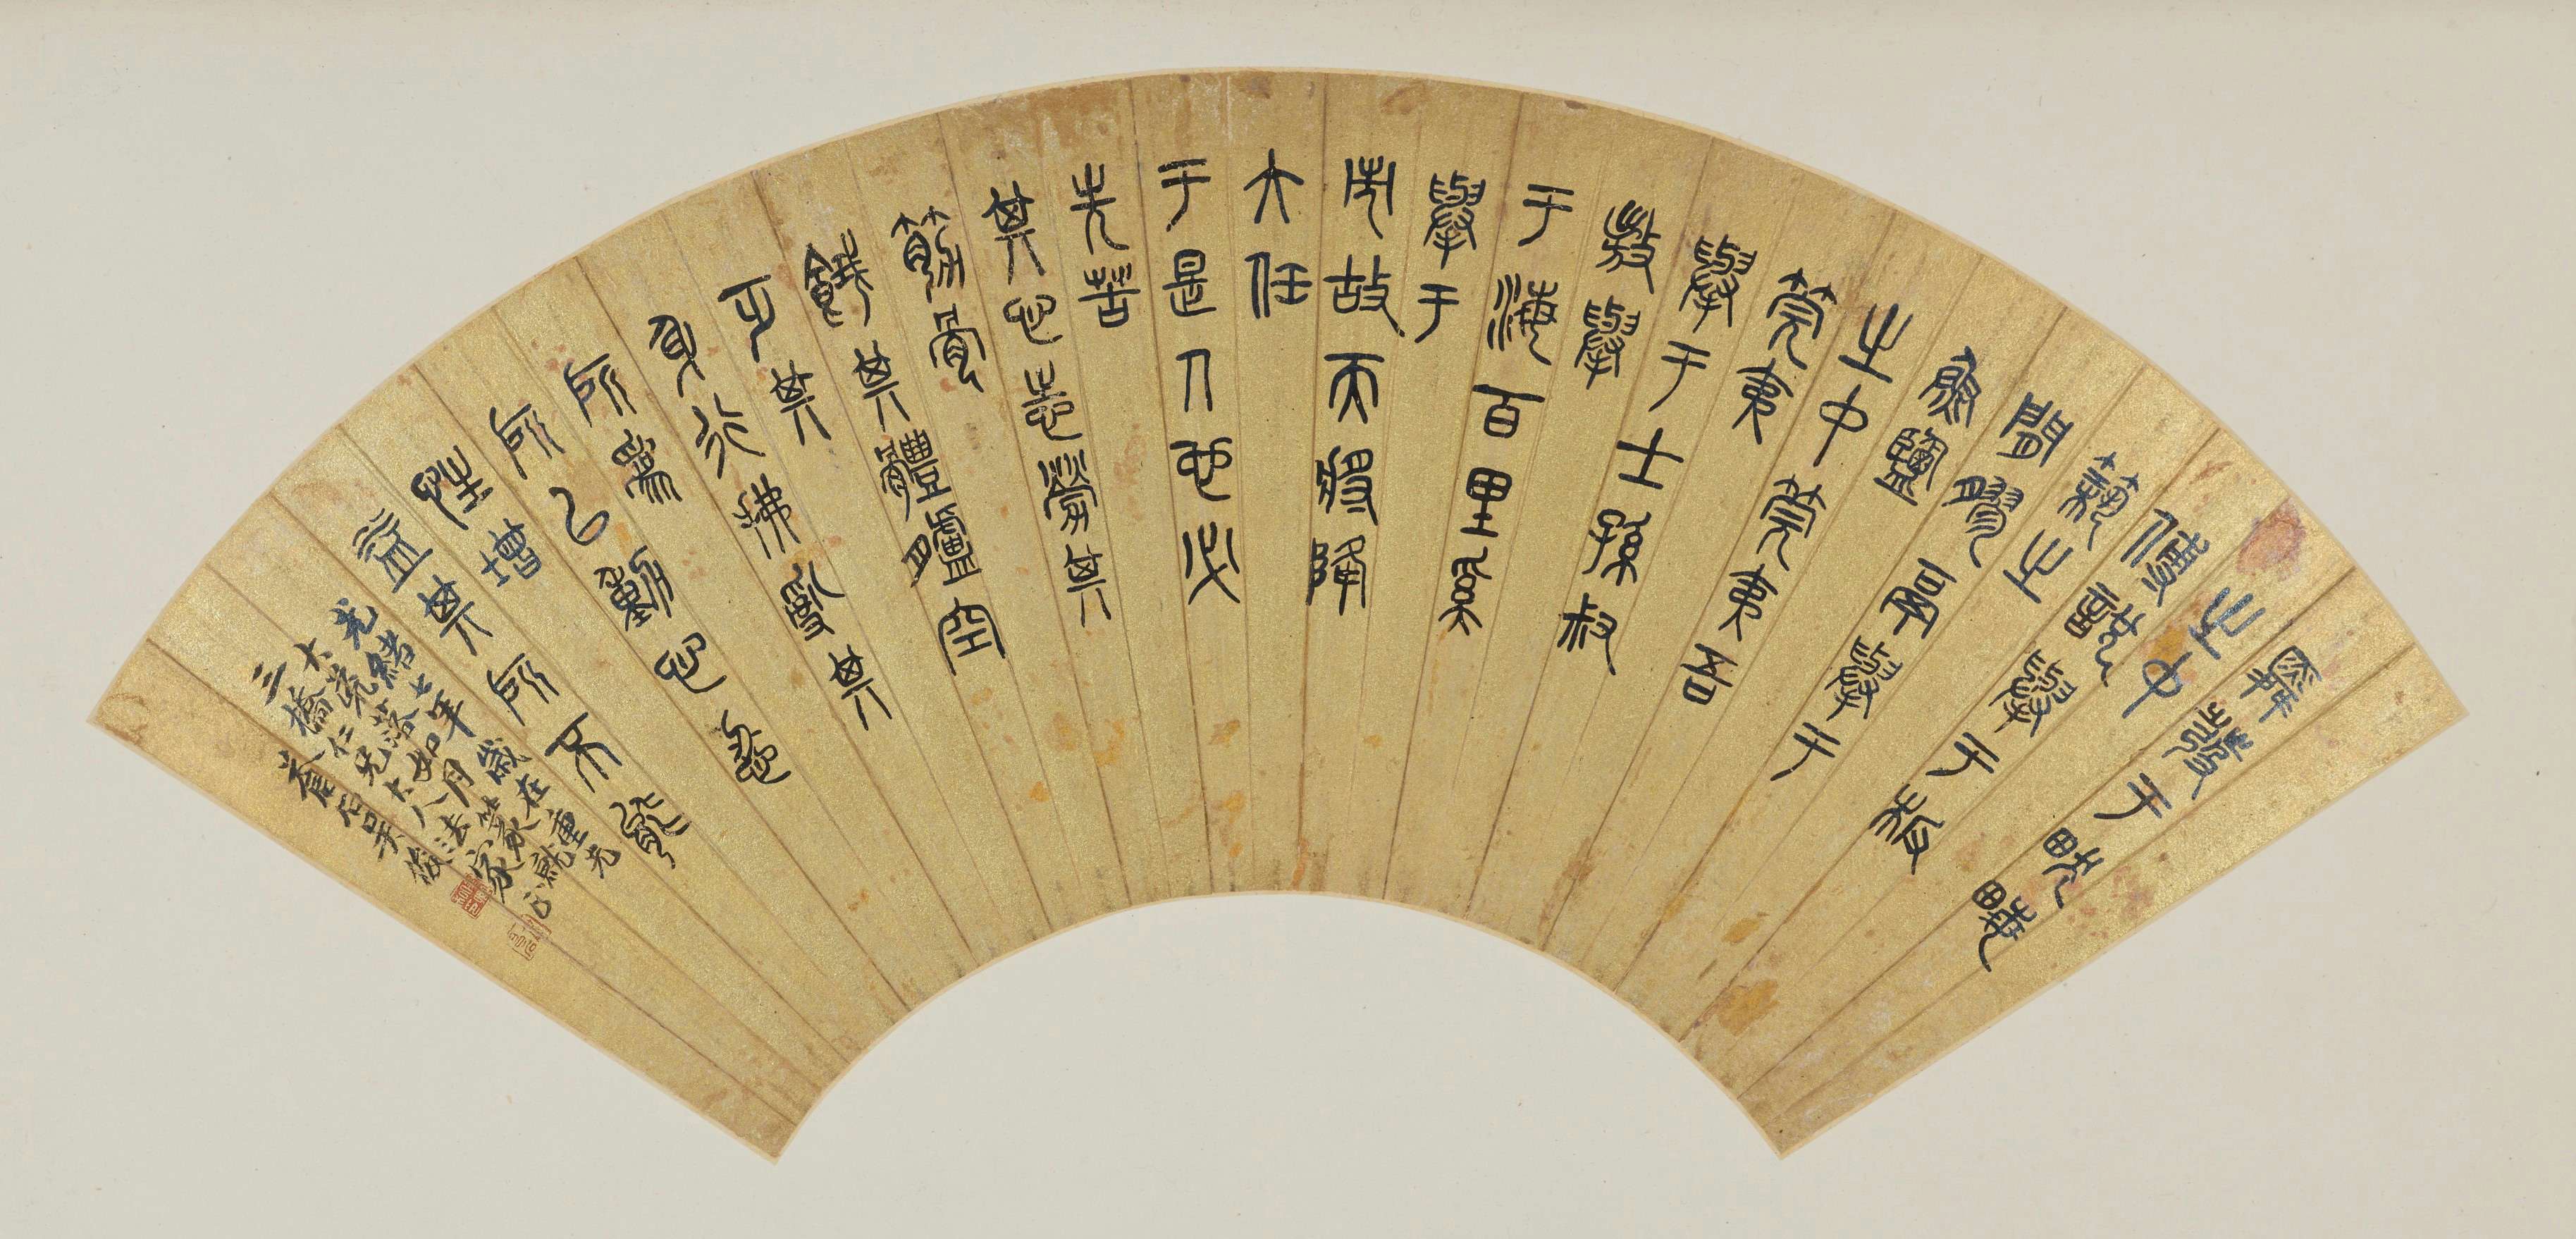 舜發于畎畝
之中
傅說舉于版
築之
間膠鬲舉于
魚鹽
之中筦夷吾
筦夷
舉于士孫叔
敖舉
于海百里奚
舉于
市故天將降
大任
于是人也必
先苦
其心志勞其
筋骨
餓其體膚空
乏其
身行拂亂其
所為
所以動心忍
性增
益其所不能
光緒七年歲在重光
大荒落如月篆就
三橋仁兄大人法家
蒼石吳俊